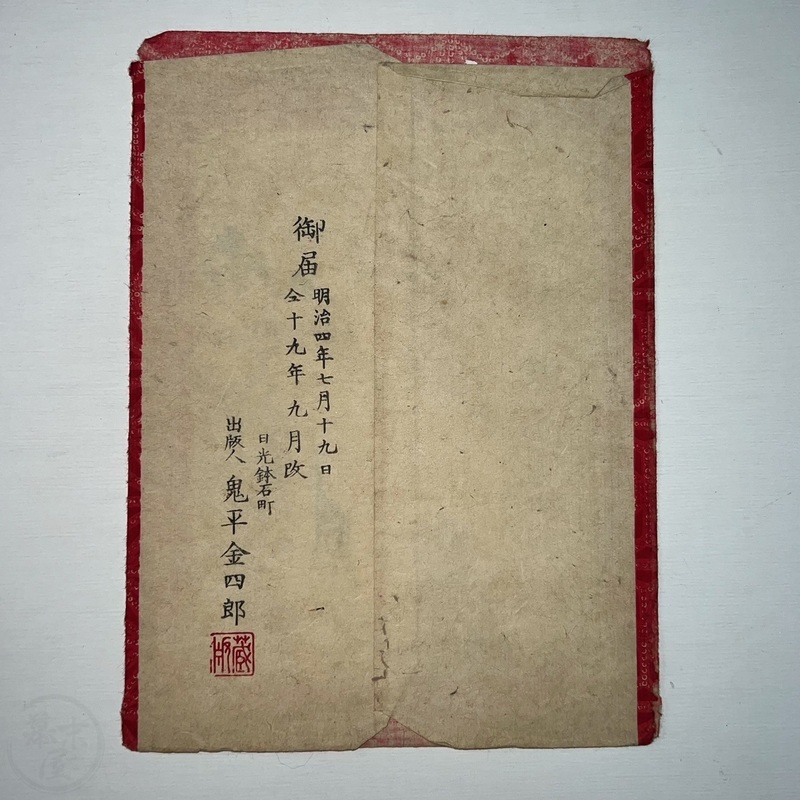 御届
明治四年七月十九日
仝十九年九月改
日光鉢石町
出版人
鬼平金四郎
蔵版